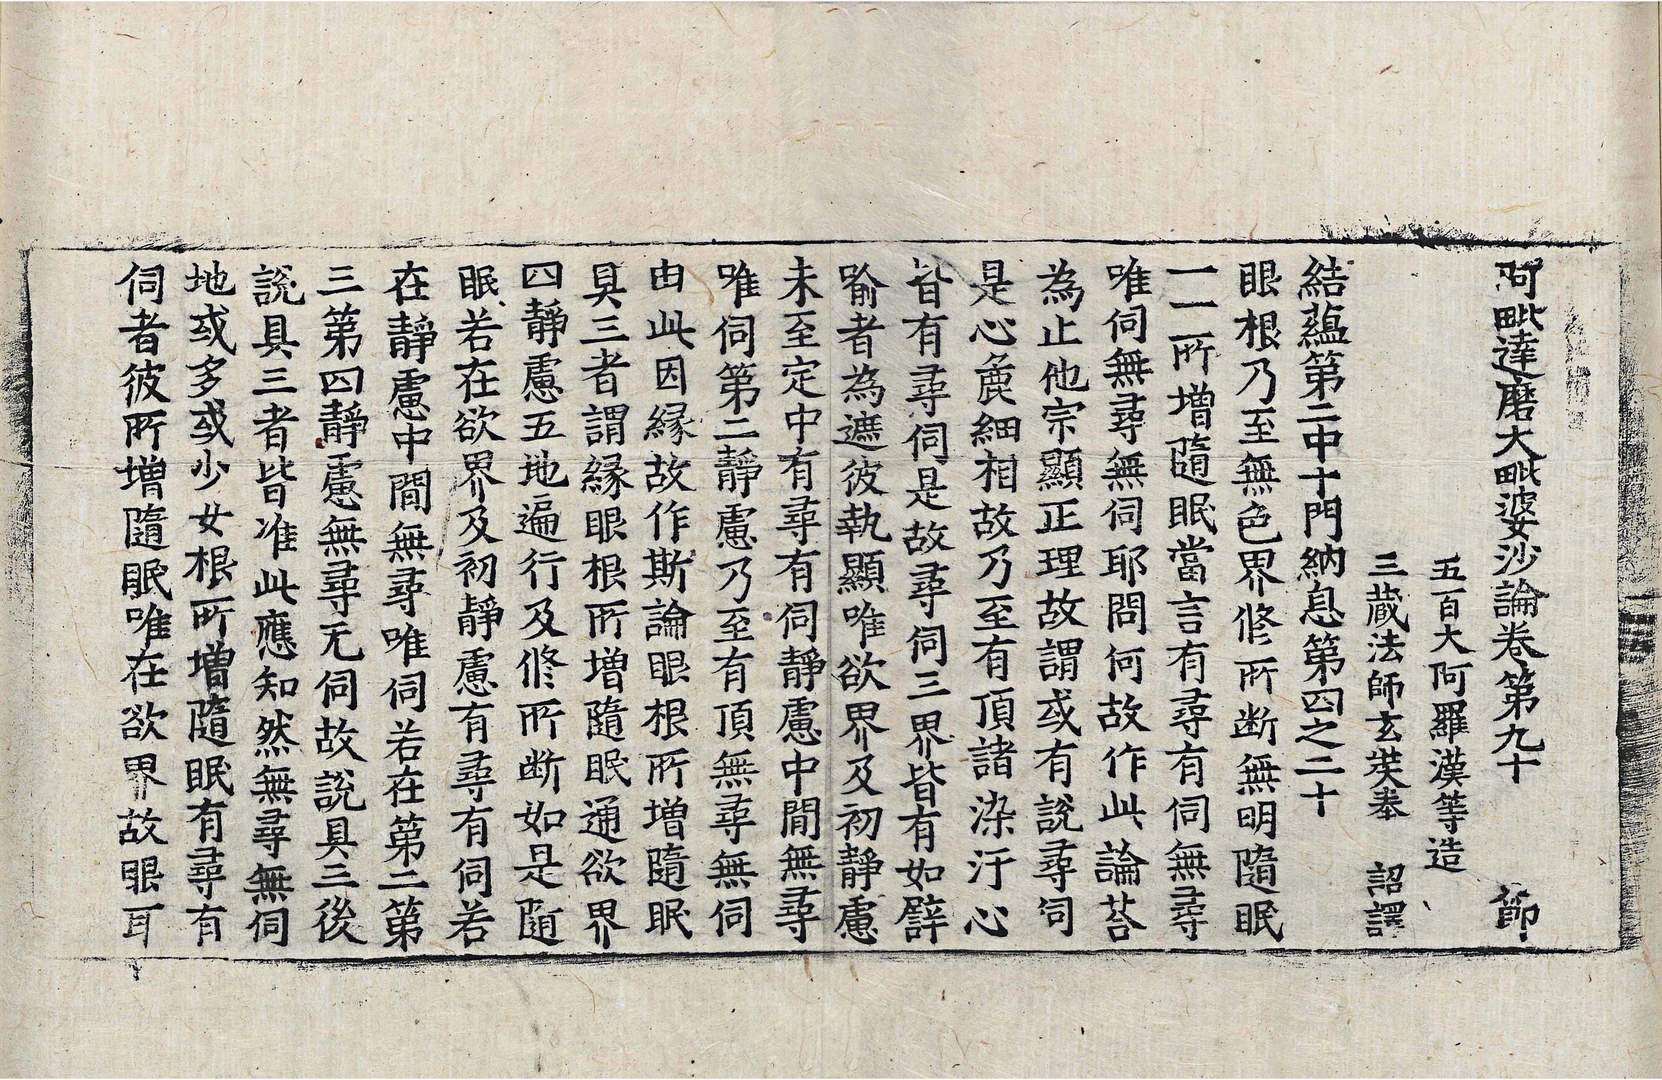 阿毗達磨大毗婆沙論卷第九十 節
五百大阿羅漢等造
三藏法師玄奘奉 詔譯
結蘊第二中十門納息第四之二十
眼根乃至無色界修所断無明隨眠
一一所增隨眠當言有尋有伺無尋
唯伺無尋無伺耶問何故作此論荅
為止他宗顯正理故謂或有說尋伺
是心麁細相故乃至有頂諸染汙心
皆有尋伺是故尋伺三界皆有如譬
喻者為遮彼執顯唯欲界及初靜慮
未至定中有尋有伺靜慮中間無尋
唯伺第二靜慮乃至有頂無尋無伺
由此因緣故作斯論眼根所增隨眠
具三者謂緣眼根所增隨眠通欲界
四靜慮五地遍行及修所断如是隨
眠若在欲界及初靜慮有尋有伺若
在靜慮中間無尋唯伺若在第二第
三第四靜慮無尋无伺故說具三後
說具三者皆准此應知然無尋無伺
地或多或少女根所增隨眠有尋有
伺者彼所增隨眠唯在欲界故眼耳